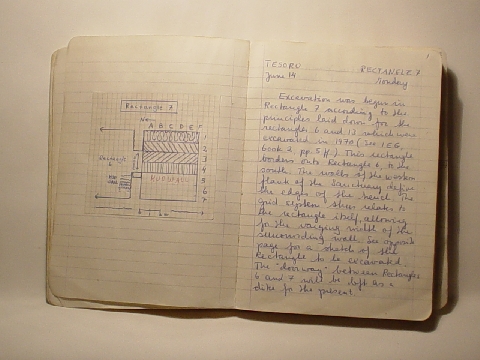 Rectangle 7
A B C D E F
1
2
3
4
5
6
7
Rectangle
6
TESORO RECTANGLE 7
June 14 Monday
Excavation was begun in
Rectangle 7 according to the
principles laid down for the
rectangles 6 and 1, which were
excavated in 1970 (see IEG,
book 2 pp. 5 ff.) This rectangle
borders onto Rectangle 6 to the
south. The walls of the western
flank of the Sanctuary define
the edges of the trench. The
grid system sheer relates to
the rectangle itself, allowing
for the varying width of the
surrounding wall. See opposite
page for a sketch of the
Rectangle to be excavated.
The "doorway" between Rectangles
6 and 7 will be left as a
dike for the present.